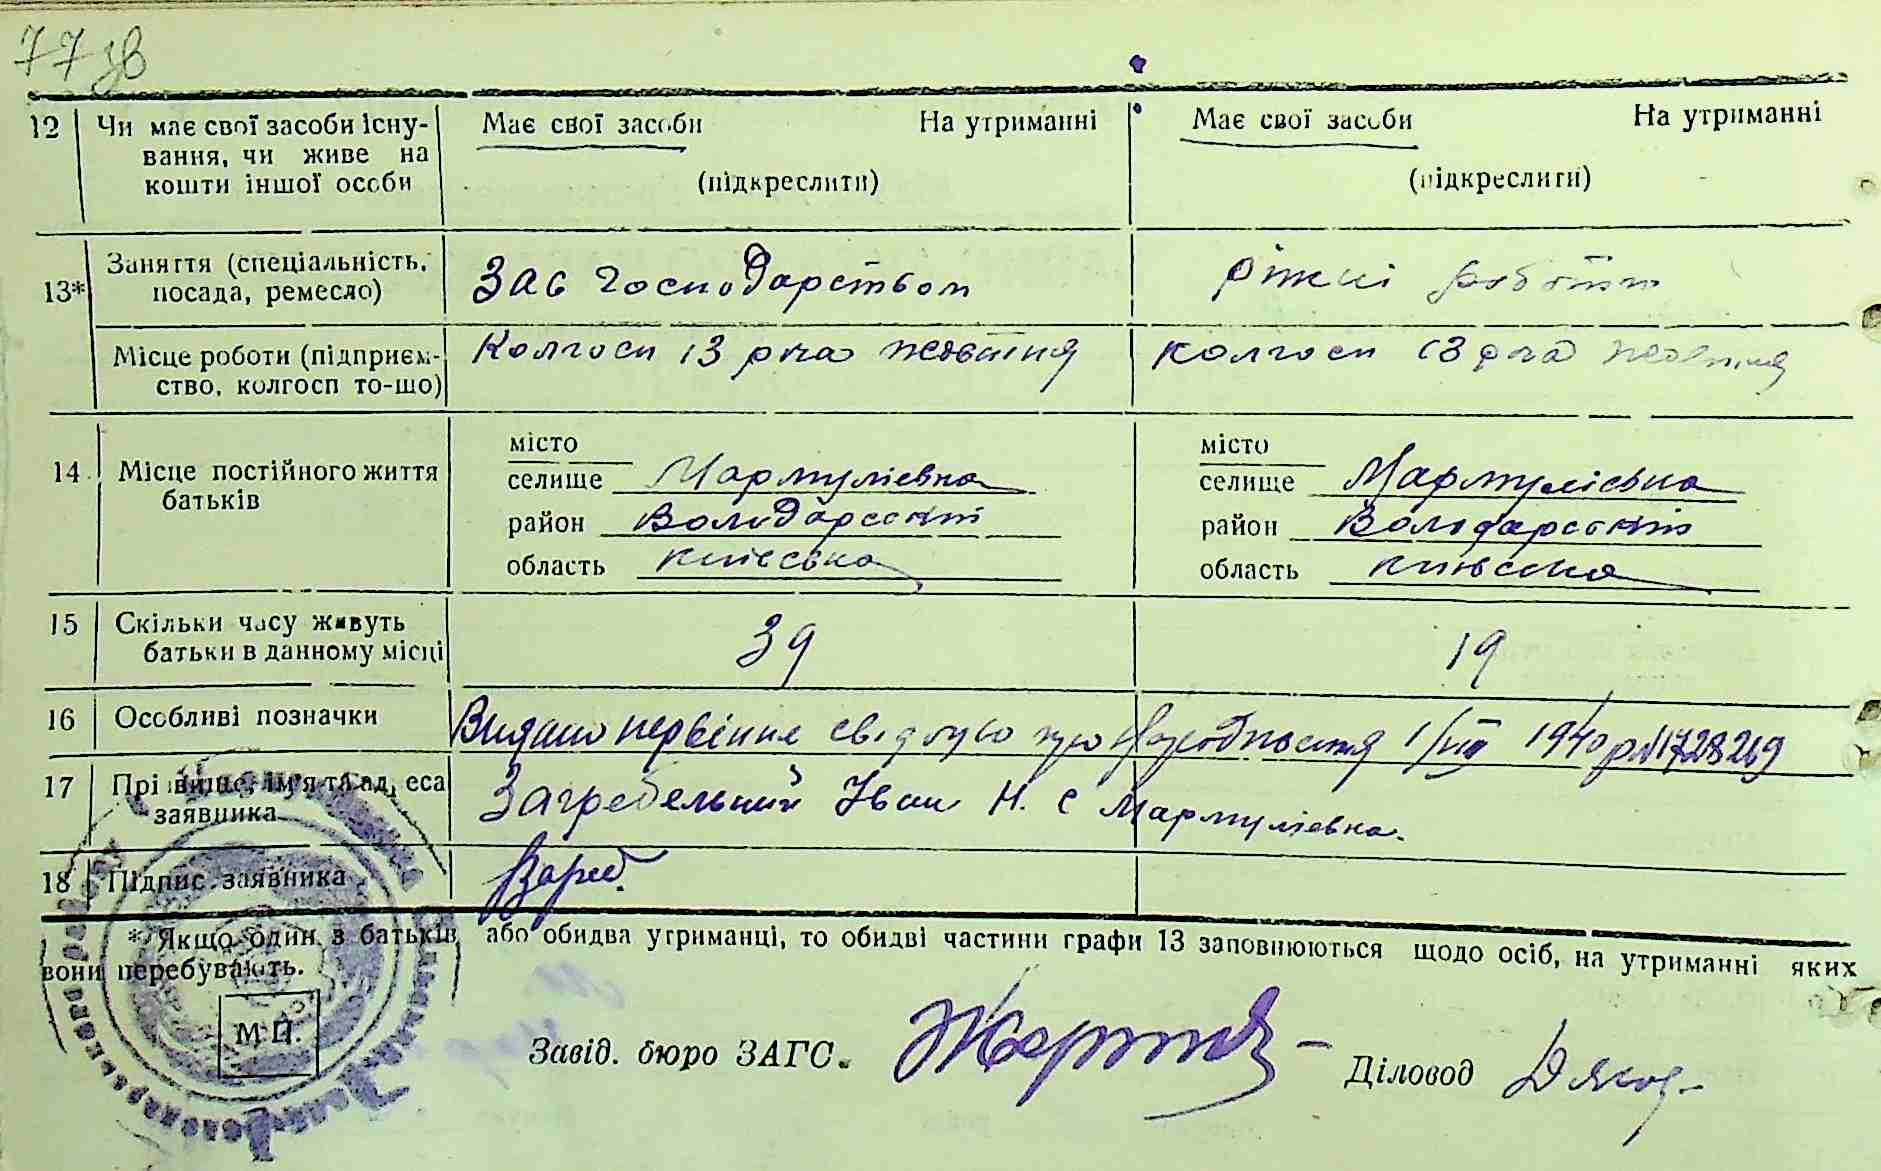 77 зв
12 Чи має свої засоби існу- Має свої засоби На утриманні Має свої засоби На утриманні
вання, чи живе на
кошти іншої особи (підкреслити) (підкреслити)
13* Заняття (спеціальність, посада, ремесло) Зав господарством ріжні роботи
Місце роботи (підприєм- Колгосп 13 річа жовтня колгосп 13 річа жовтня
ство, колгосп то-що)
14 Місце постійного життя батьків
місто місто
селище Мармуліевна селище Мармуліевна
район Володарский район Володарский
область Київська область Київська
15 Скільки часу живуть
батьки в данному місці 39 19
16 Особливі позначки Видано первінне свідоцтво про 1/VIII 1940 р №1728269
17 Прізвище, ім'я та адреса Загребельний Іван Н. с Мармуліевна.
заявника
18 Підпис заявника
* Якщо один з батьків або обидва утриманці, то обидві частини графи 13 заповнюються щодо осіб, на утриманні яких
вони перебувають.
М П.
Завід. бюро ЗАГС.
Діловод